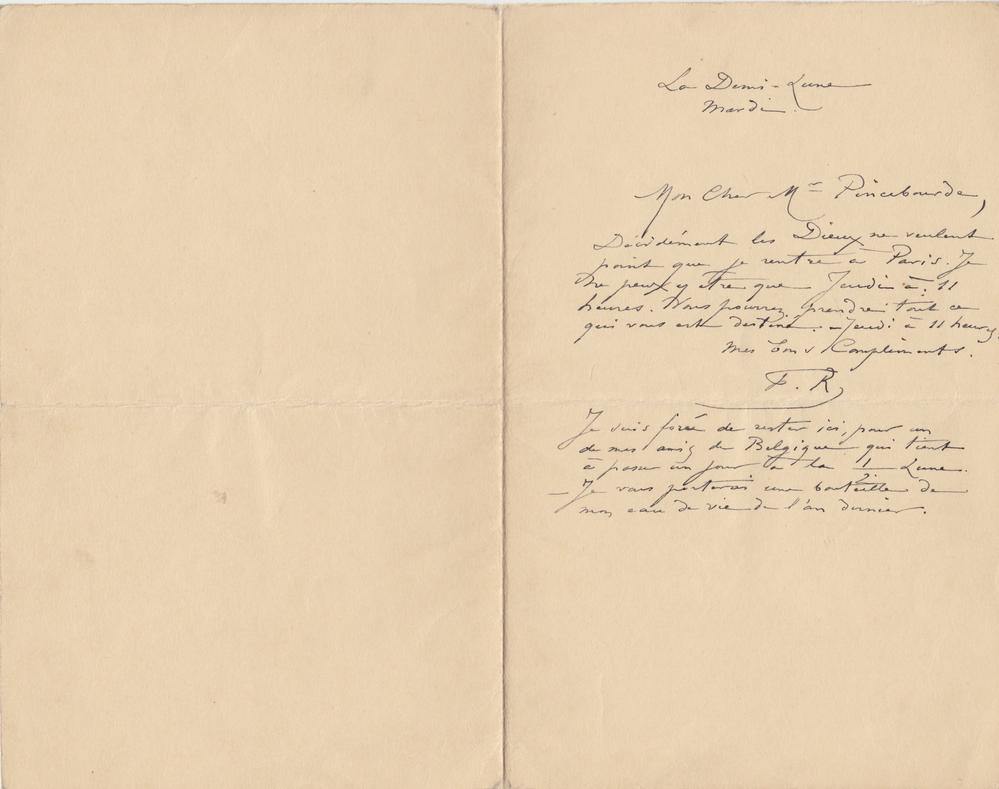 La Demi-Lune
Mardi.
Mon Cher Mr Pincebourde,
Décidément les Dieux ne veulent
point que je rentre à Paris. Je
ne peux y être que Jeudi à 11
heures. Vous pourrez prendre tout ce
qui vous est destiné. – Jeudi à 11 heures.
Mes bons Compliments.
F. R
Je suis forcé de rester ici, pour un
de mes amis de Belgique qui tient
à passer un jour à la 1/2 Lune.
– Je vous porterai une bouteille de
mon eau de vie de l'an dernier.